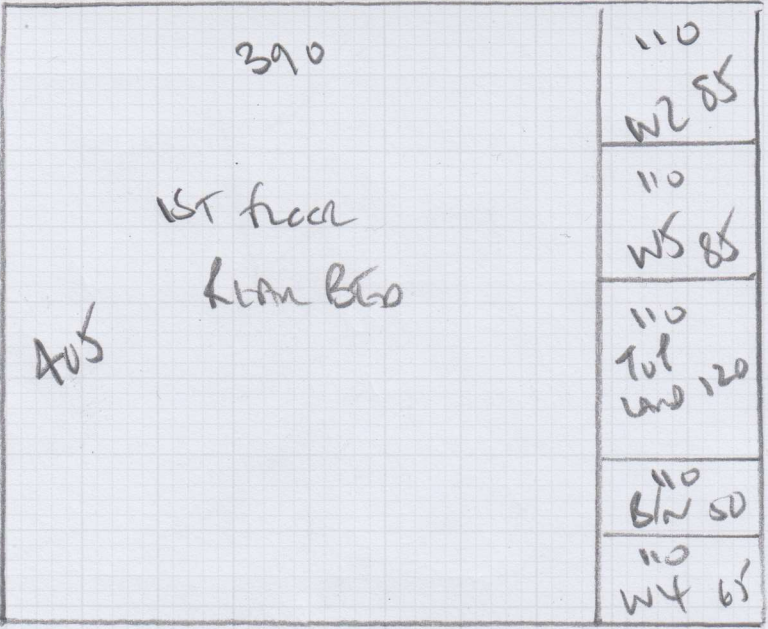 390
1ST floor
REAR BED
405
110
W2 85
110
W5 85
110
TOP
LAND 120
110
B/N 50
110
W4 65